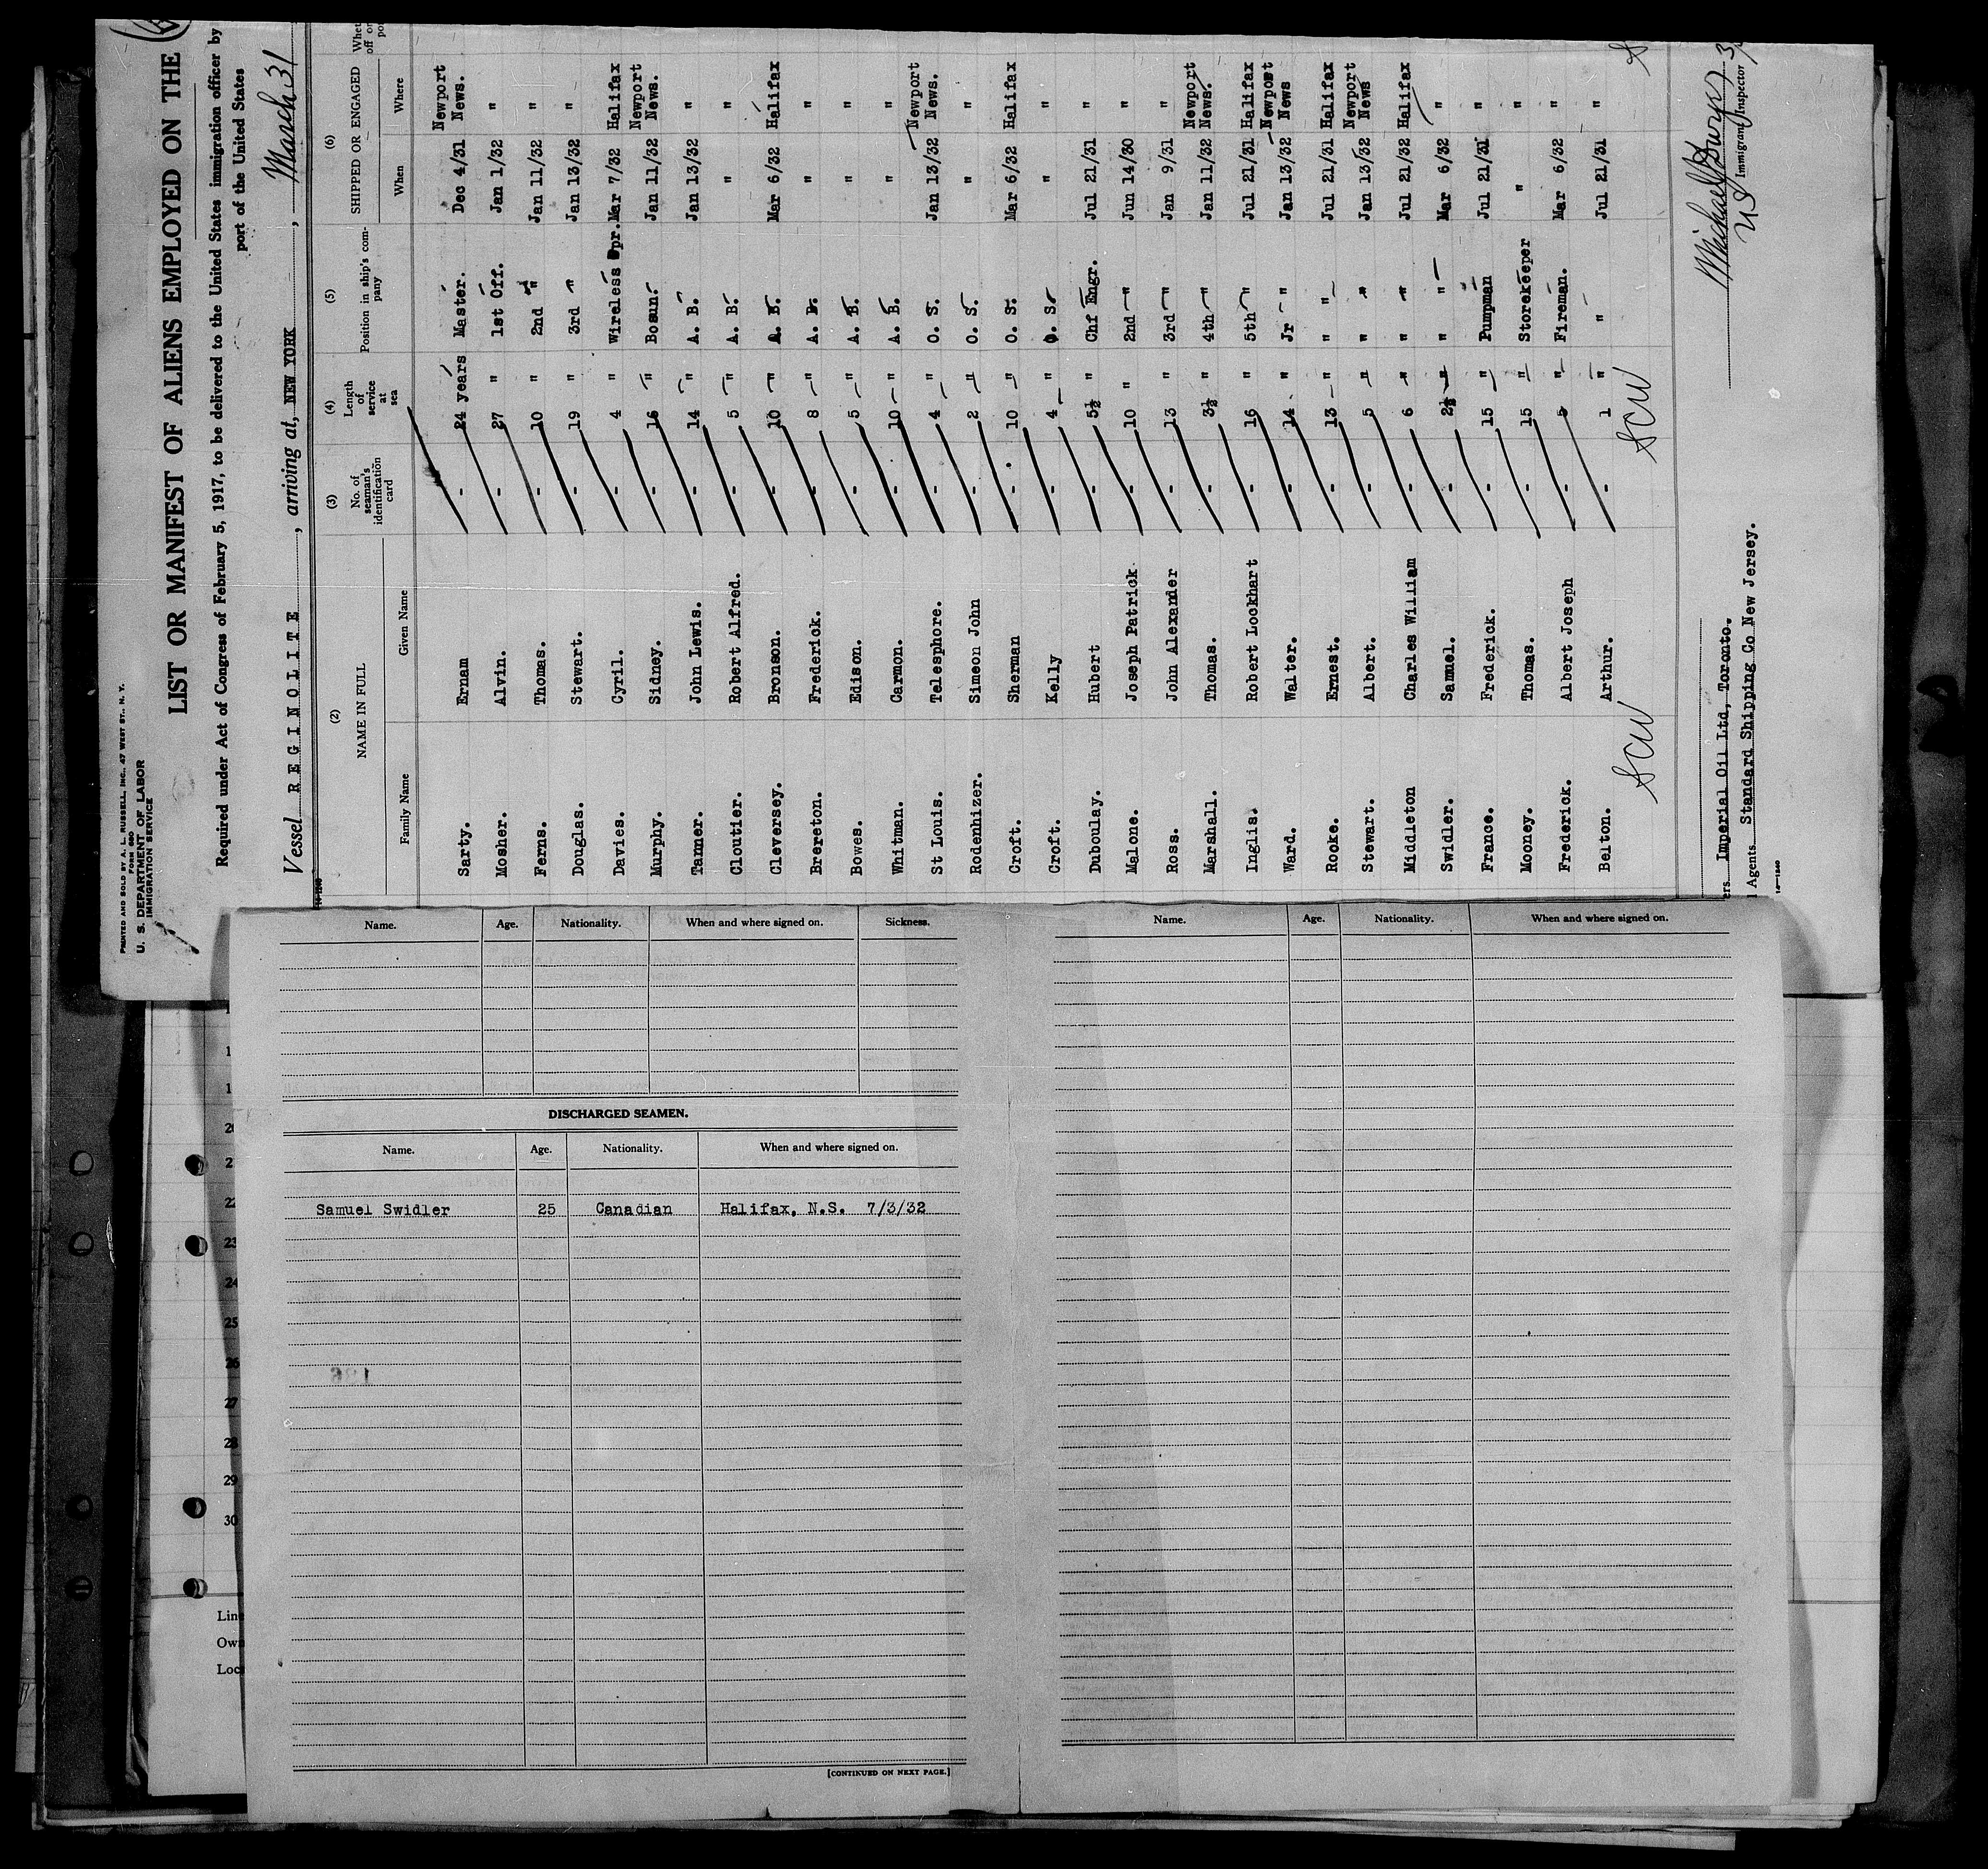 PRINTED AND SOLD BY A. L. RUSSELL, INC., 47 WEST ST., N. Y.
FORM 680
U. S. DEPARTMENT OF LABOR
IMMIGRATION SERVICE
LIST OR MANIFEST OF ALIENS EMPLOYED ON THE
Required under Act of Congress of February 5, 1917, to be delivered to the United States immigration officer by
port of the United States
Vessel REGINOLITE, arriving at, NEW YORK, March 31
(2) (3) (4) (5) (6)
NAME IN FULL No. of seaman's identification card Length of service at sea Position in ship's company SHIPPED OR ENGAGED
Family Name Given Name When Where
Sarty. Ernam - 24 years Master. Dec 4/31 Newport News.
Mosher. Alvin. - 27 " 1st Off. Jan 1/32 "
Ferns. Thomas. - 10 " 2nd " Jan 11/32 "
Douglas. Stewart. - 19 " 3rd " Jan 13/32 "
Davies. Cyril. - 4 " Wireless Opr. Mar 7/32 Halifax
Murphy. Sidney. - 16 " Bosun. Jan 11/32 Newport News.
Tanner. John Lewis. - 14 " A. B. Jan 13/32 "
Cloutier. Robert Alfred. - 5 " A. B. " "
Cleversey. Bronson. - 10 " A. B. Mar 6/32 Halifax
Brereton. Frederick. - 8 " A. B. " "
Bowes. Edison. - 5 " A. B. " "
Whitman. Carmon. - 10 " A. B. " "
St Louis. Telesphore. - 4 " O. S. Jan 13/32 Newport News.
Rodenhizer. Simeon John - 2 " O. S. " "
Croft. Sherman - 10 " O. S. Mar 6/32 Halifax
Croft. Kelly - 4 " O. S. " "
Duboulay. Hubert - 5½ " Chf Engr. Jul 21/31 "
Malone. Joseph Patrick - 10 " 2nd " Jun 14/30 "
Ross. John Alexander - 13 " 3rd " Jan 9/31 "
Marshall. Thomas. - 3½ " 4th " Jan 11/32 Newport News.
Inglis. Robert Lockhart - 16 " 5th " Jul 21/31 Halifax
Ward. Walter. - 14 " Jr " Jan 13/32 Newport News
Rooke. Ernest. - 13 " " " Jul 21/31 Halifax
Stewart. Albert. - 5 " " Jan 13/32 Newport News
Middleton Charles William - 6 " " " Jul 21/32 Halifax
Swidler. Samuel. - 2½ " " " Mar 6/32 "
France. Frederick. - 15 " Pumpman Jul 21/31 "
Mooney. Thomas. - 15 " Storekeeper " "
Frederick. Albert Joseph - 5 " Fireman. Mar 6/32 "
Belton. Arthur. - 1 " " Jul 21/31 "
SCW SCW
Imperial Oil Ltd, Toronto.
Agents Standard Shipping Co New Jersey.
Immigrant Inspector
Name. Age. Nationality. When and where signed on. Sickness.
DISCHARGED SEAMEN.
Name. Age. Nationality. When and where signed on.
Samuel Swidler 25 Canadian Halifax, N.S. 7/3/32
[CONTINUED ON NEXT PAGE.]
Name. Age. Nationality. When and where signed on.
22
23
24
25
26
27
28
29
30